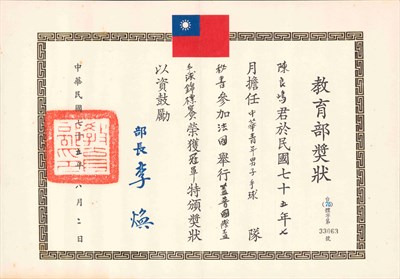 教育部獎狀
號
陳良君於民國七十五年七
月擔任中華青年男子手球隊
秘書參加法國舉行蓋普國際
錦標賽榮獲冠軍特頒獎狀
以資鼓勵
部長李煥
中華民國七十五年八月二日
教育部印